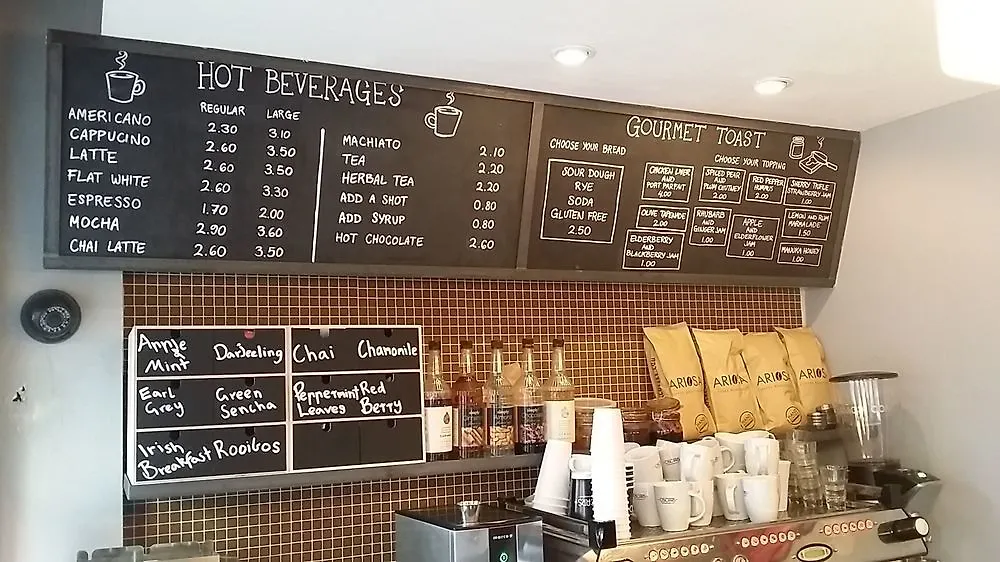 HOT BEVERAGES
REGULAR LARGE
AMERICANO 2.30 3.10
CAPPUCINO 2.60 3.50
LATTE 2.60 3.50
FLAT WHITE 2.60 3.30
ESPRESSO 1.70 2.00
MOCHA 2.90 3.60
CHAI LATTE 2.60 3.50
MACHIATO 2.10
TEA 2.20
HERBAL TEA 2.20
ADD A SHOT 0.80
ADD SYRUP 0.80
HOT CHOCOLATE 2.60
GOURMET TOAST
CHOOSE YOUR BREAD
SOUR DOUGH
RYE
SODA
GLUTEN FREE
2.50
CHOOSE YOUR TOPPING
CHICKEN LIVER
AND
PORT PARFAIT
4.00
SPICED PEAR
AND
PLUM CHUTNEY
2.00
RED PEPPER
HUMMUS
2.00
SHERRY TRIFLE
STRAWBERRY JAM
1.00
OLIVE TAPENADE
2.00
RHUBARB
AND
GINGER JAM
1.00
APPLE
AND
ELDERFLOWER
JAM
1.00
LEMON AND RUM
MARMALADE
1.50
ELDERBERRY
AND
BLACKBERRY JAM
1.00
MANUKA HONEY
1.00
Apple
&
Mint
Darjeeling
Chai
Chamomile
Earl
Grey
Green
Sencha
Peppermint
Leaves
Red
Berry
Irish
Breakfast
Rooibos
ARIOSA
ARIOSA
ARIOSA
ARIOSA
marco